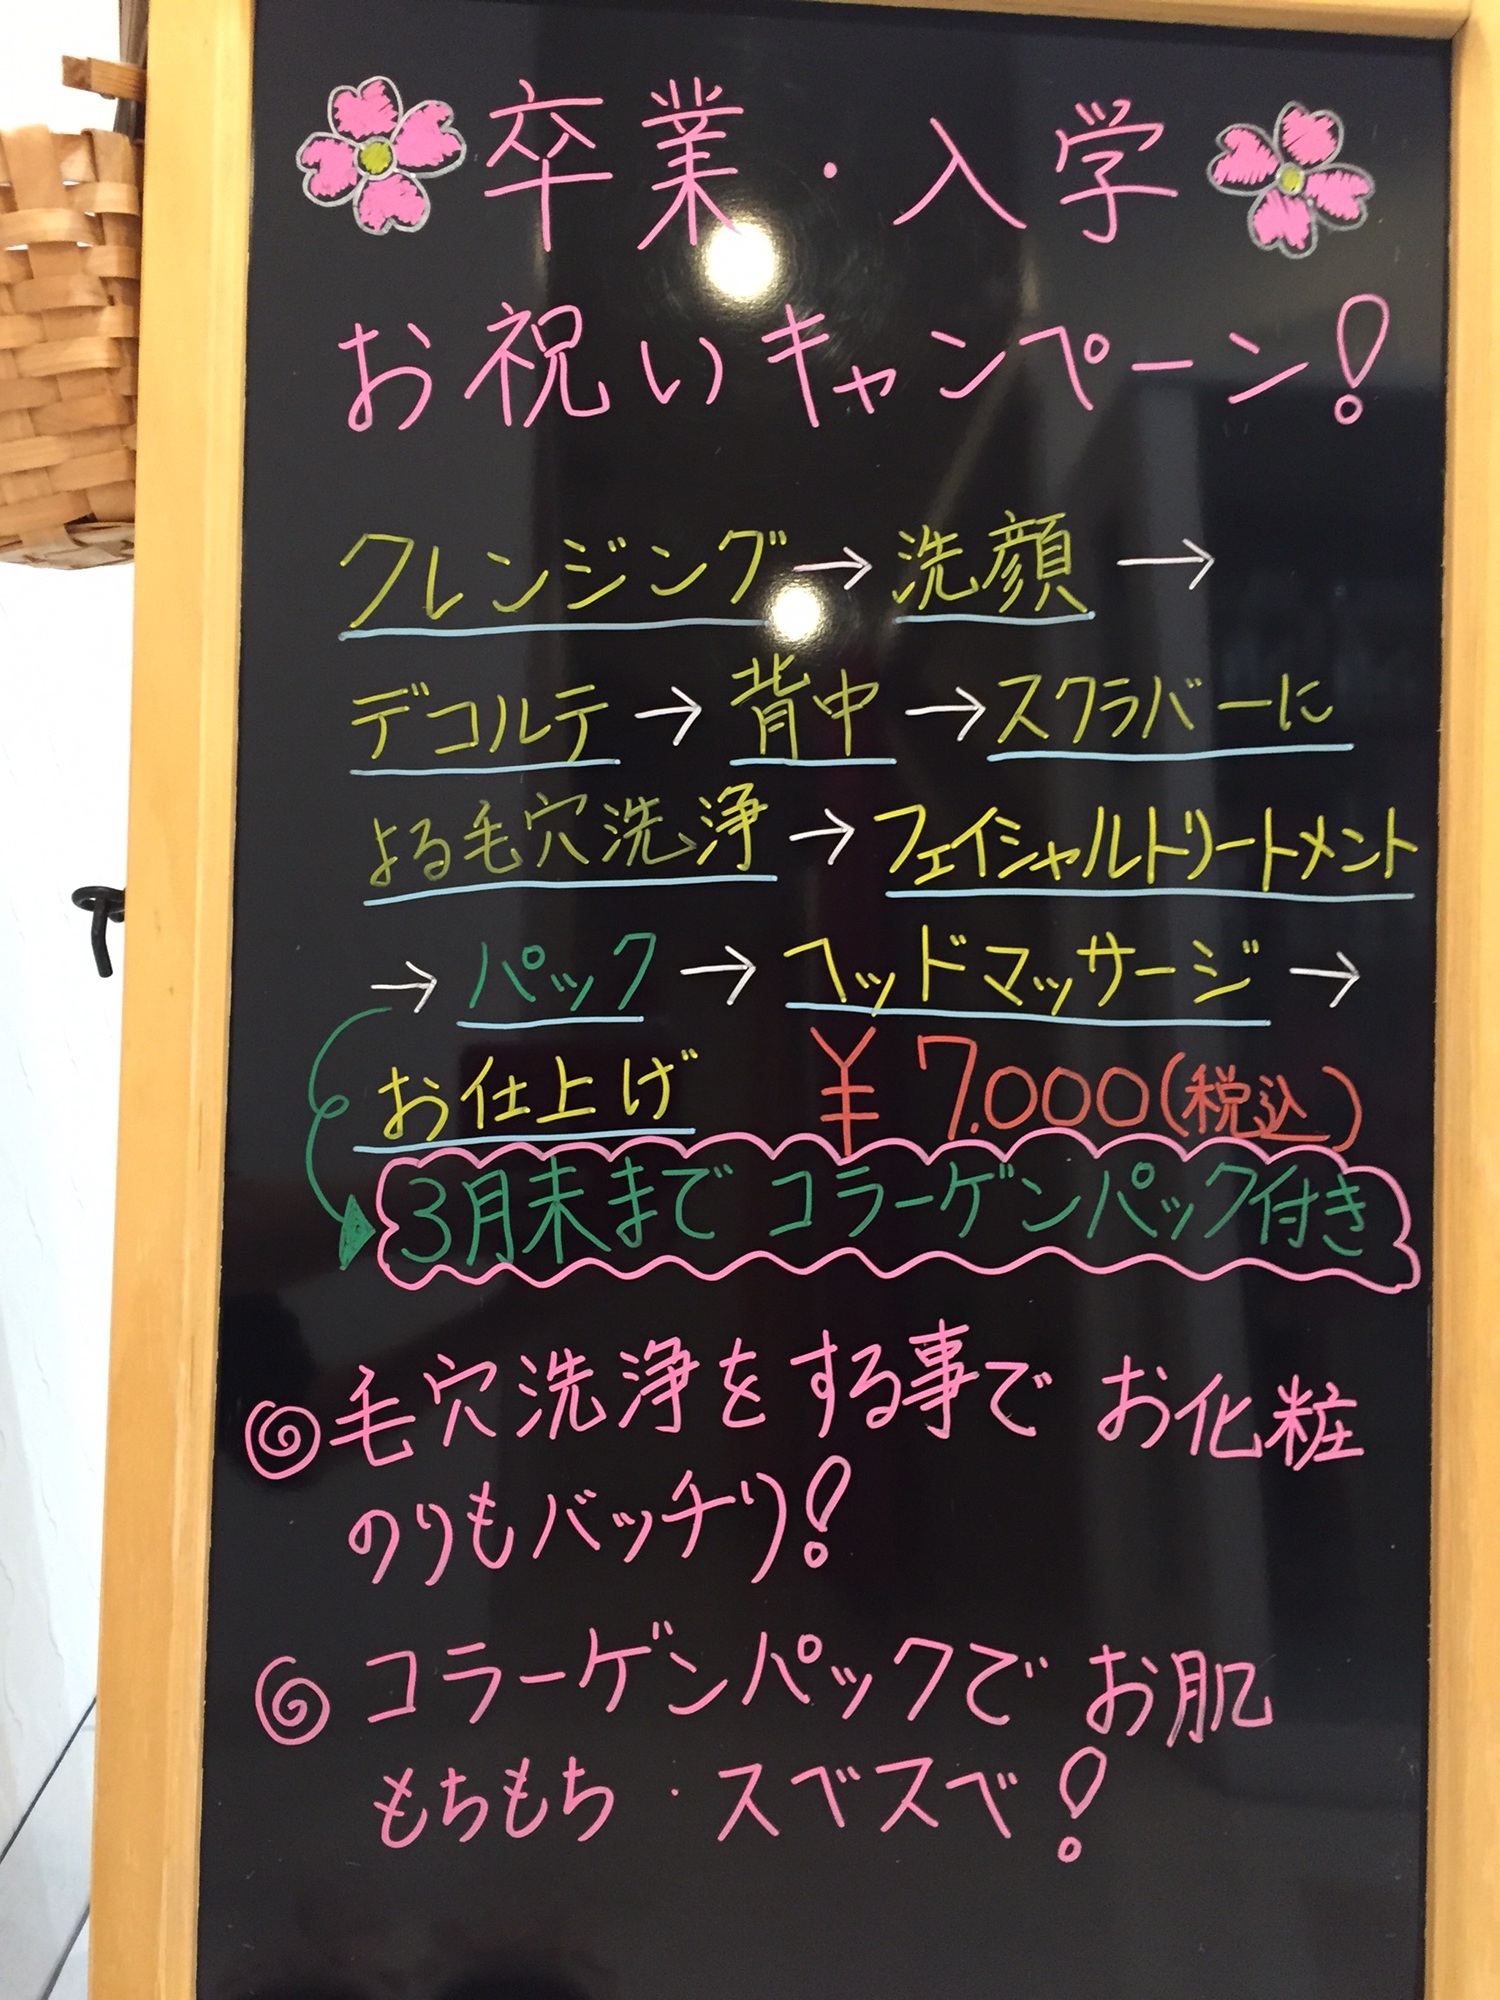 卒業・入学
お祝いキャンペーン!
クレンジング→洗顔→
デコルテ→背中→スクラバーに
よる毛穴洗浄→フェイシャルトリートメント
→パック→ヘッドマッサージ→
お仕上げ ¥7.000(税込)
3月末までコラーゲンパック付き
毛穴洗浄をする事でお化粧
のりもバッチリ!
コラーゲンパックでお肌
もちもち・スベスベ!